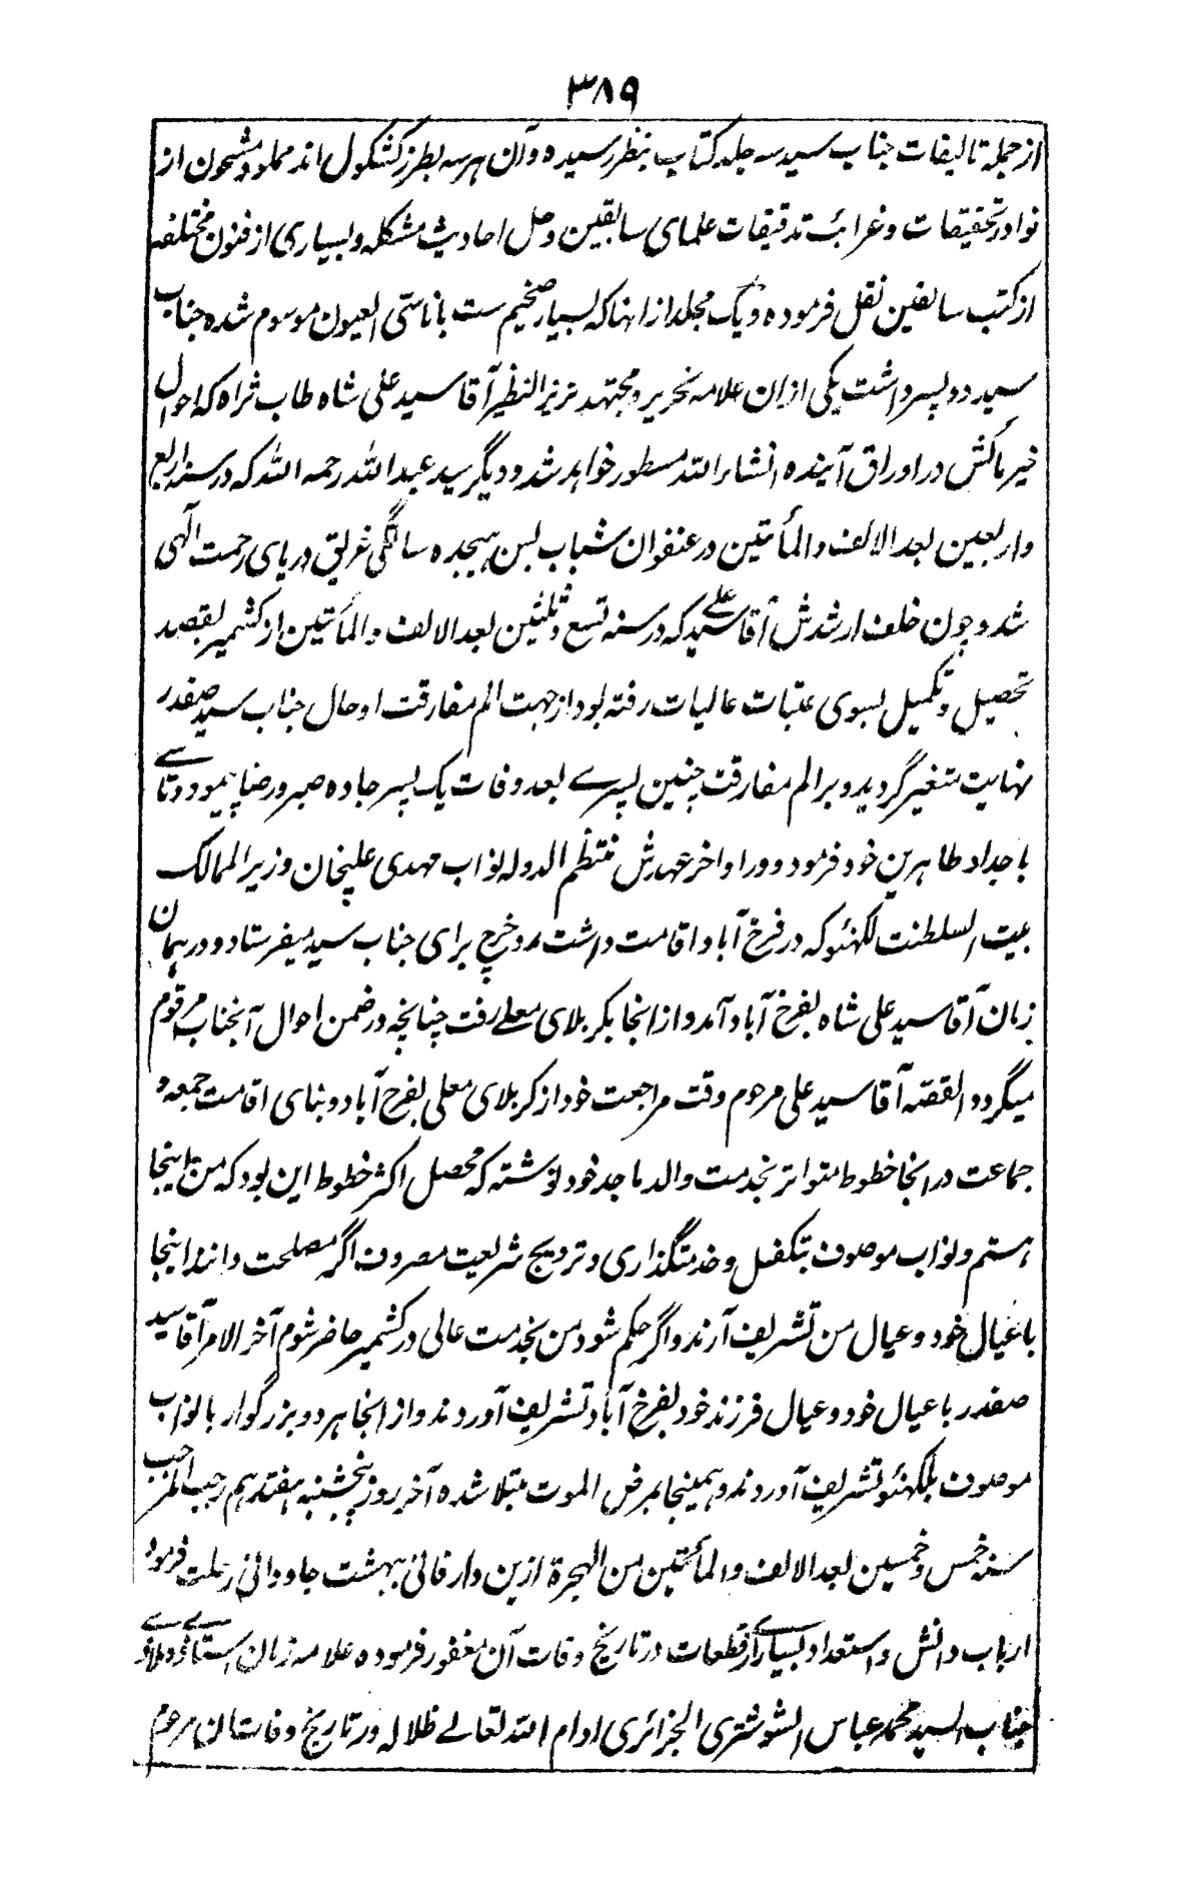 ۳۸۹
از جمله تالیفات جناب سید سه جلد کتاب بنظر رسیده و آن هر سه بطرز کشکول اند مملو و مشحون از
نوادر تحقیقات و غرائب تدقیقات علمای سابقین و حل احادیث مشکله و بسیاری از فنون مختلفه
از کتب سالفین نقل فرموده و یک مجلد از انها که بسیار ضخیم ست باناسی العیون موسوم شده جناب
سید دو پسر داشت یکی ازان علامه نحریر و مجتهد نزیز النظیر آقا سید علی شاه طاب ثراه که احوال
خیر مآلش در اوراق آینده انشاء الله مسطور خواهد شد و دیگر سید عبد الله رحمه الله که در سنه اربع
و اربعین بعد الالف و المأتین در عنفوان شباب بسن هیجده سالگی غریق دریای رحمت الهی
شد و چون خلف ارشدش آقا سید علی که در سنه تسع و ثلثین بعد الالف و المأتین از کشمیر بقصد
تحصیل و تکمیل بسوی عتبات عالیات رفته بود از جهت الم مفارقت او حال جناب سید صفدر
نهایت متغیر گردید و بر الم مفارقت چنین پسرے بعد وفات یک پسر جاده صبر و رضا پیمود و تاسے
باجداد طاهرین خود فرمود و در اواخر عهدش منتظم الدوله نواب مهدی علیخان وزیر الممالک
بیت السلطنت لکهنئو که در فرخ آباد اقامت داشت خرچ برای جناب سید میفرستاد و در همان
زمان آقا سید علی شاه بفرخ آباد آمد و از انجا بکربلای معلے رفت چنانچه در ضمن احوال آنجناب مرقوم
میگردد القصه آقا سید علی مرحوم وقت مراجعت خود از کربلای معلی بفرخ آباد و بنای اقامت جمعه و
جماعت در انجا خطوط متواتر بخدمت والد ماجد خود نوشته که محصل اکثر خطوط این بود که من اینجا
هستم و نواب موصوف بتکفل و خدمتگذاری و ترویج شریعت مصروف اگر مصلحت دانند اینجا
با عیال خود و عیال من تشریف آرند و اگر حکم شود من بخدمت عالی در کشمیر حاضر شوم آخر الامر آقا سید
صفدر با عیال خود و عیال فرزند خود بفرخ آباد تشریف آوردند و از انجا هر دو بزرگوار با نواب
موصوف بلکهنئو تشریف آوردند و همینجا بمرض الموت مبتلا شده آخر روز پنجشنبه هفتدهم رجب المرجب
سنه خمس و خمسین بعد الالف و المأتین من الهجرة ازین دار فانی ببهشت جاودانی رحلت فرمود
ارباب دانش و استعداد بسیارے از قطعات در تاریخ وفات آن مغفور فرموده علامه زمان استاذے و ملاذے
جناب السید محمد عباس الشوشتری الجزائری ادام الله تعالے ظلاله در تاریخ وفات ان مرحوم